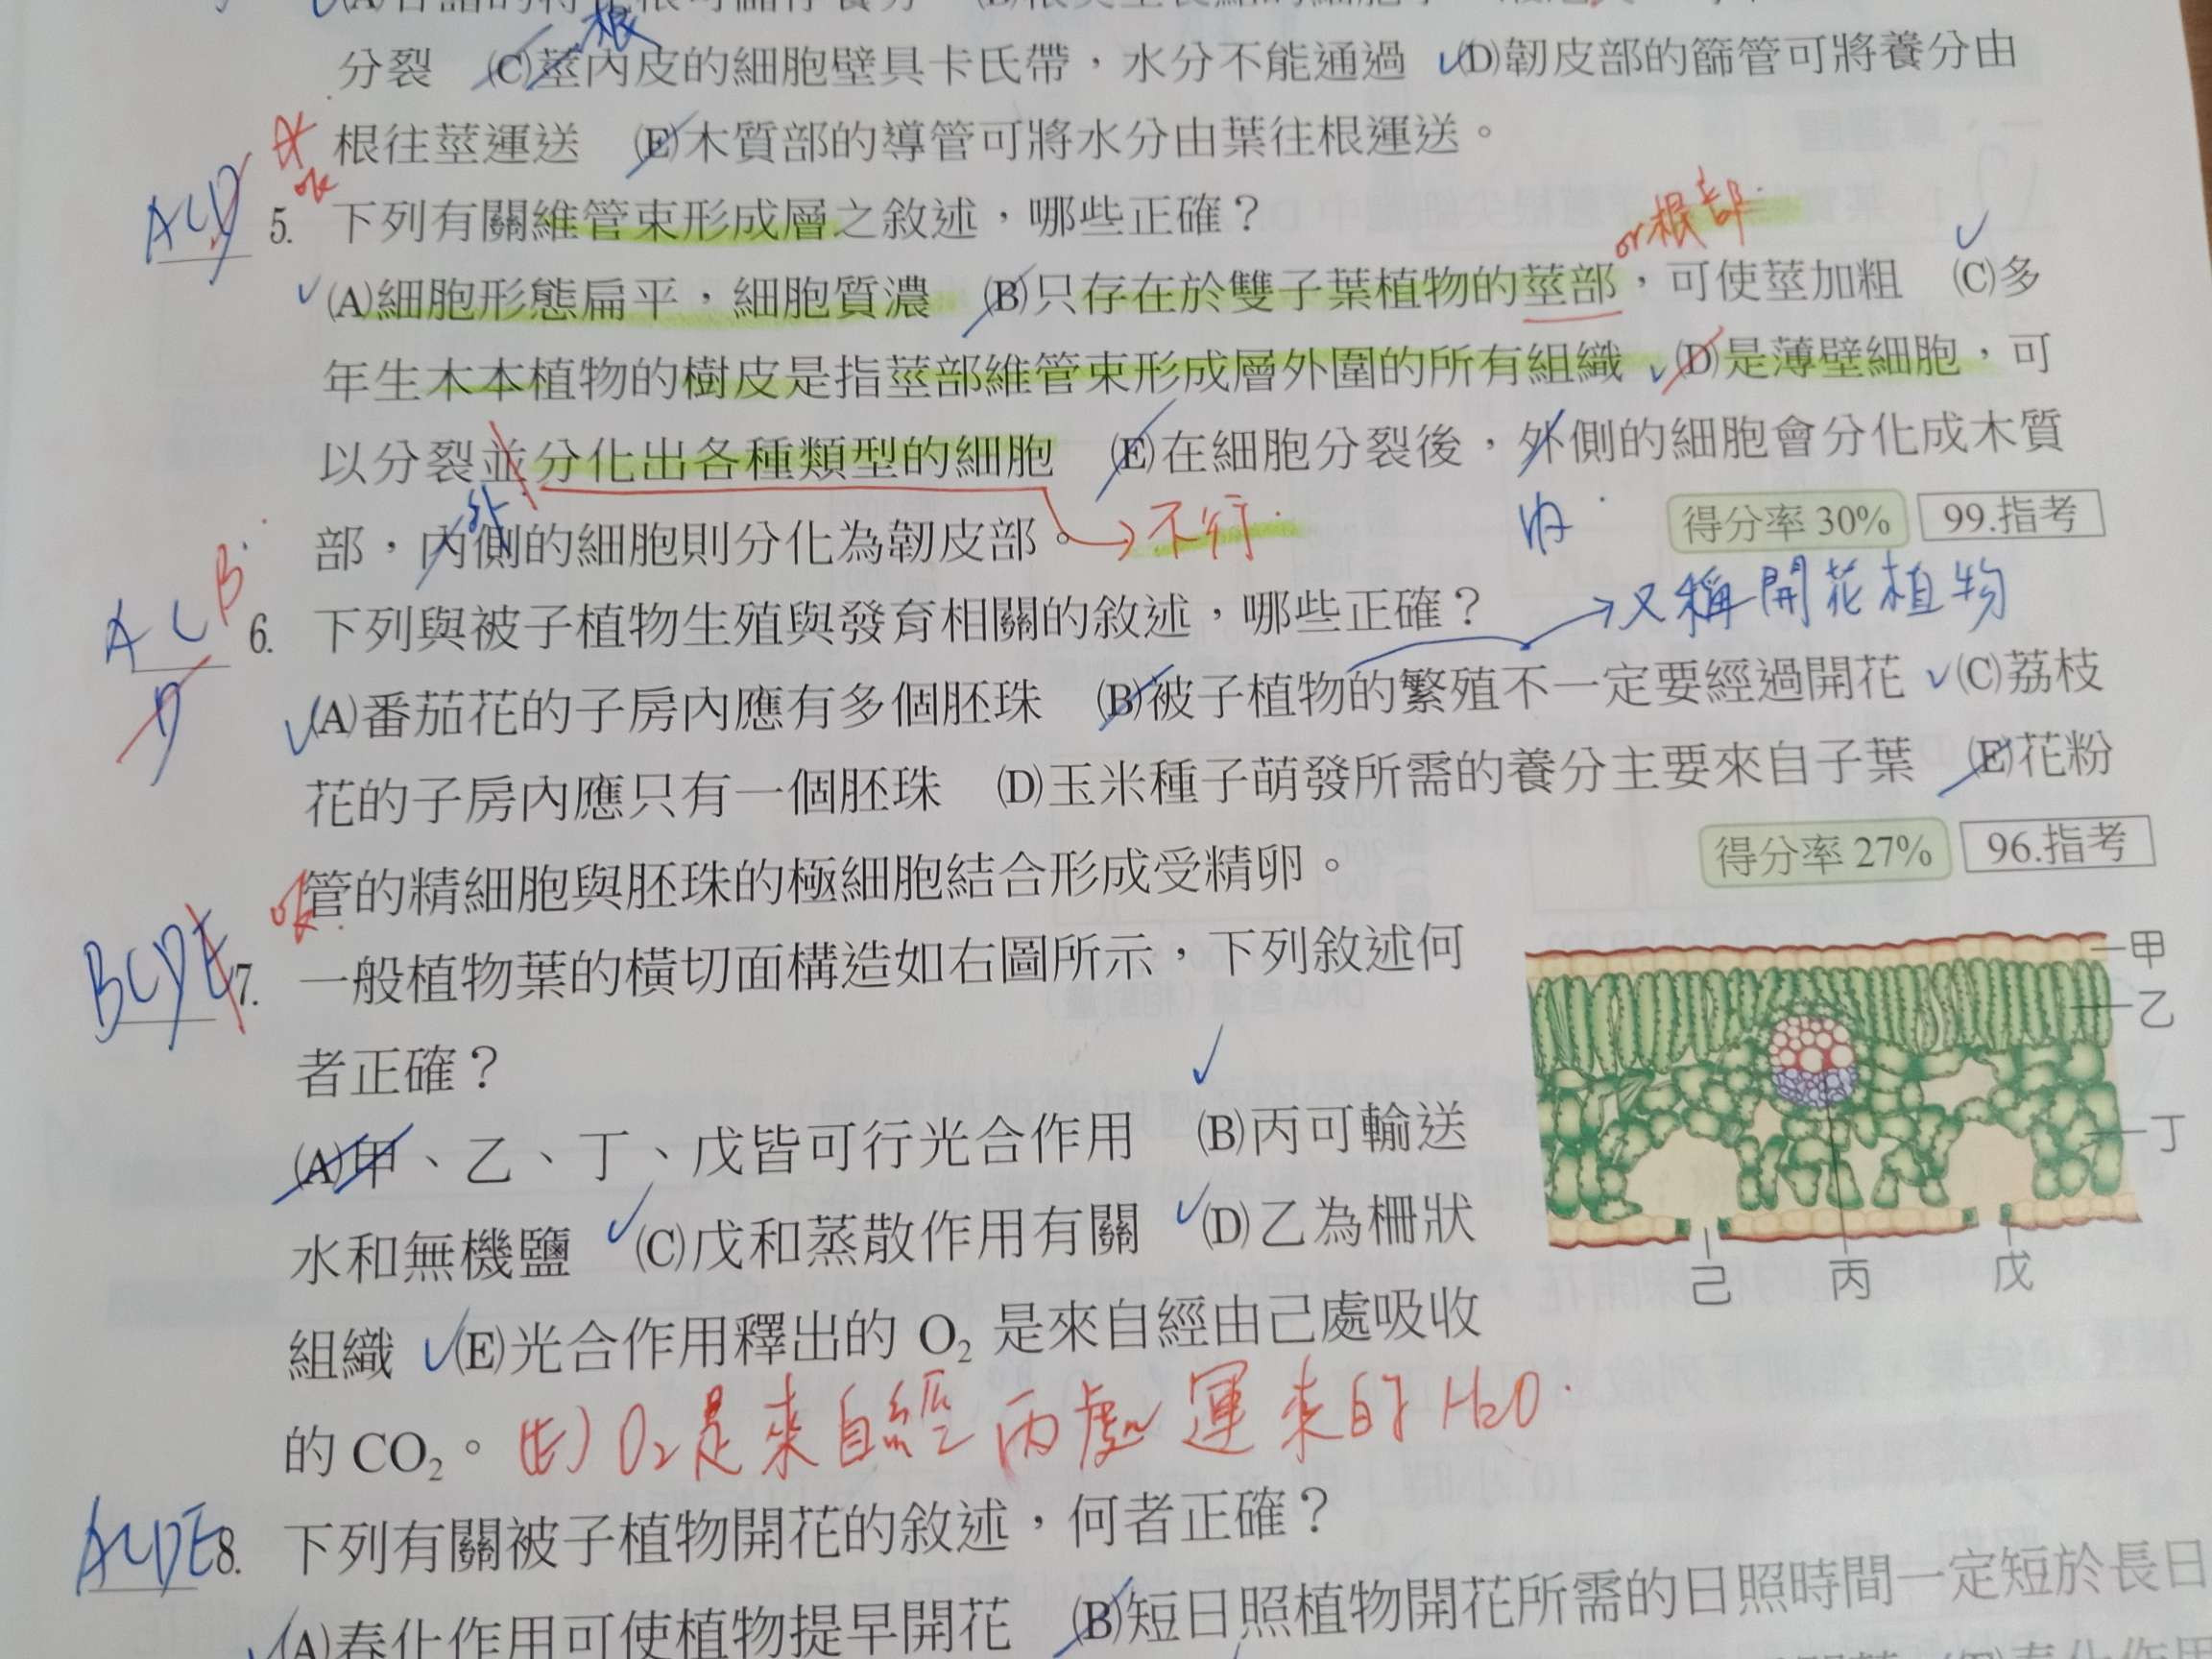 分裂 (C)莖內皮的細胞壁具卡氏帶，水分不能通過 (D)韌皮部的篩管可將養分由
根
根往莖運送 (E)木質部的導管可將水分由葉往根運送。
ACD
5. 下列有關維管束形成層之敘述，哪些正確？
or根部
(A)細胞形態扁平，細胞質濃 (B)只存在於雙子葉植物的莖部，可使莖加粗 (C)多
年生木本植物的樹皮是指莖部維管束形成層外圍的所有組織 (D)是薄壁細胞，可
以分裂並分化出各種類型的細胞 (E)在細胞分裂後，外側的細胞會分化成木質
外 內
部，內側的細胞則分化為韌皮部。 →不行 得分率30% 99.指考
ACB
D
6. 下列與被子植物生殖與發育相關的敘述，哪些正確？ →又稱開花植物
(A)番茄花的子房內應有多個胚珠 (B)被子植物的繁殖不一定要經過開花 (C)荔枝
花的子房內應只有一個胚珠 (D)玉米種子萌發所需的養分主要來自子葉 (E)花粉
管的精細胞與胚珠的極細胞結合形成受精卵。 得分率27% 96.指考
ok
BCDE
7. 一般植物葉的橫切面構造如右圖所示，下列敘述何
者正確？
(A)甲、乙、丁、戊皆可行光合作用 (B)丙可輸送
水和無機鹽 (C)戊和蒸散作用有關 (D)乙為柵狀
組織 (E)光合作用釋出的 O₂ 是來自經由己處吸收
的 CO₂。 (E) O₂是來自經丙處運來的H₂O.
甲
乙
丁
己 丙 戊
ACDE
8. 下列有關被子植物開花的敘述，何者正確？
(A)春化作用可使植物提早開花 (B)短日照植物開花所需的日照時間一定短於長日